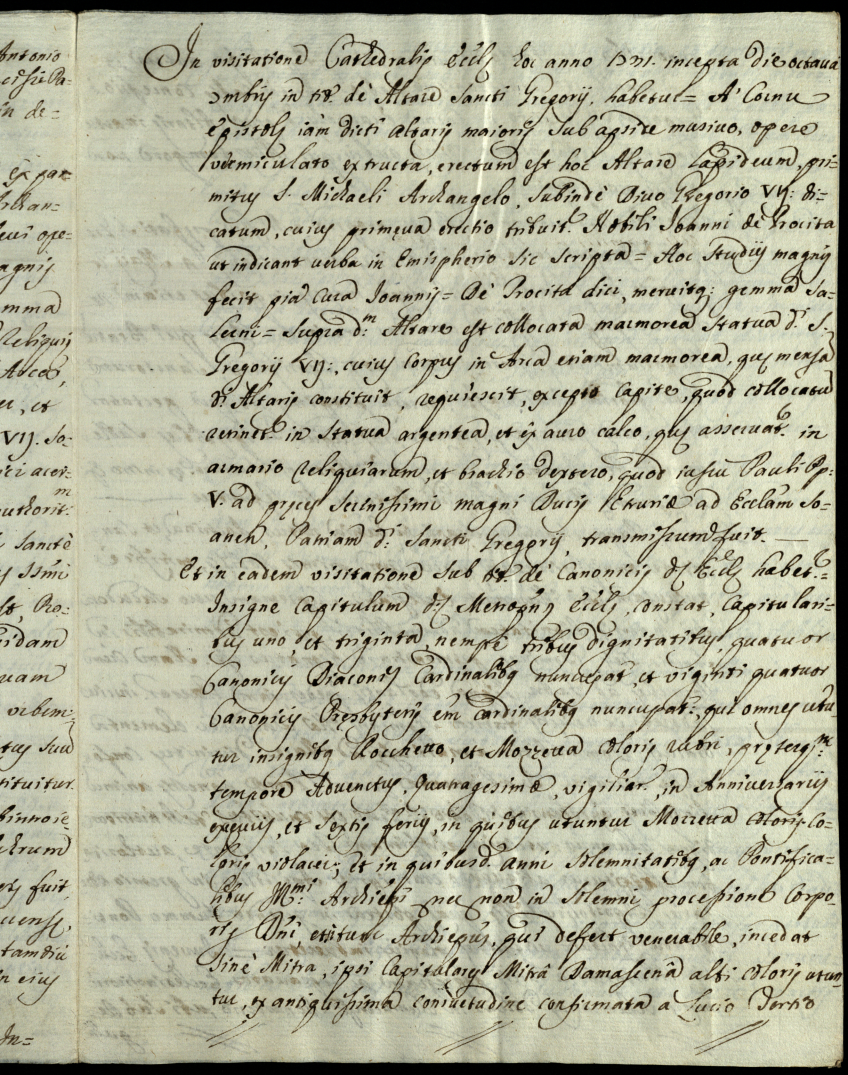 Antonio
In visitatione Cathedralis Eccle hoc anno 1731. incepta die octava
in de=
Xmbris in tit. de Altare Sancti Gregorij, habetur = A' Cornu
Epistole iam dicti Altaris maioris sub apside musivo, opere
vermiculato extructa, erectum est hoc Altare Lapideum, pri=
mitus S. Michaeli Archangelo, subinde Divo Gregorio VII: di=
catum, cuius primeva erectio tribuit.r Nobili Ioanni de Procita
ut indicant verba in Emispherio sic scripta = Hoc Studijs magnis
agnis
fecit pia Cura Ioannis = De Procita dici, meruitq; gemma Sa=
emma
lerni = Supra d.m Altare est collocata marmorea Statua d.i S.
Reliquijs
Gregorij VII:, cuius Corpus in Arca etiam marmorea, que mensa
d.i Altaris constituit, requiescit, excepto Capite, quod collocatum
et
retinet.r in Statua argentea, et ex auro calco, que asservat.r in
VII. So=
armario reliquiarum, et brachio dextero, quod iussu Pauli Pp:
V. ad preces Serenissimi magni Ducis Etruriæ ad Ecclam So=
anen, Patriam d.i Sancti Gregorij, transmissum fuit. —
Sancte
Et in eadem visitatione sub tit. de Canonicis d.e Eccle habet.r =
Insigne Capitulum d.e Metropne Eccle, constat, Capitulari=
bus uno, et triginta, nempe tribus dignitatibus, quatuor
Canonicis Diaconis Cardinalibq nuncupat, et viginti quatuor
Canonicis Presbyteris em Cardinalibq nuncupat:, qui omnes utu=
tur insignibq Rocchetto, et Mozzetta coloris rubri, preterq.m
tempore Adventus, Quatragesimæ, vigiliar, in Anniversarijs
stituitur.
exequijs, et sextis ferijs, in quibus utuntur Mozzetta coloris Co=
loris violacei; et in quibusd. anni solemnitatibq, ac Pontifica=
libus Ill.mi Archiepi nec non in solemni processione Corpo=
fuit
ris Dni, et tunc Archiepus, qui defert venerabile, incedat
sine Mitra, ipsi Capitulares Mitra Damascena albi coloris utun=
tur, ex antiquissima consuetudine confirmata a Lucio Tertio
In=